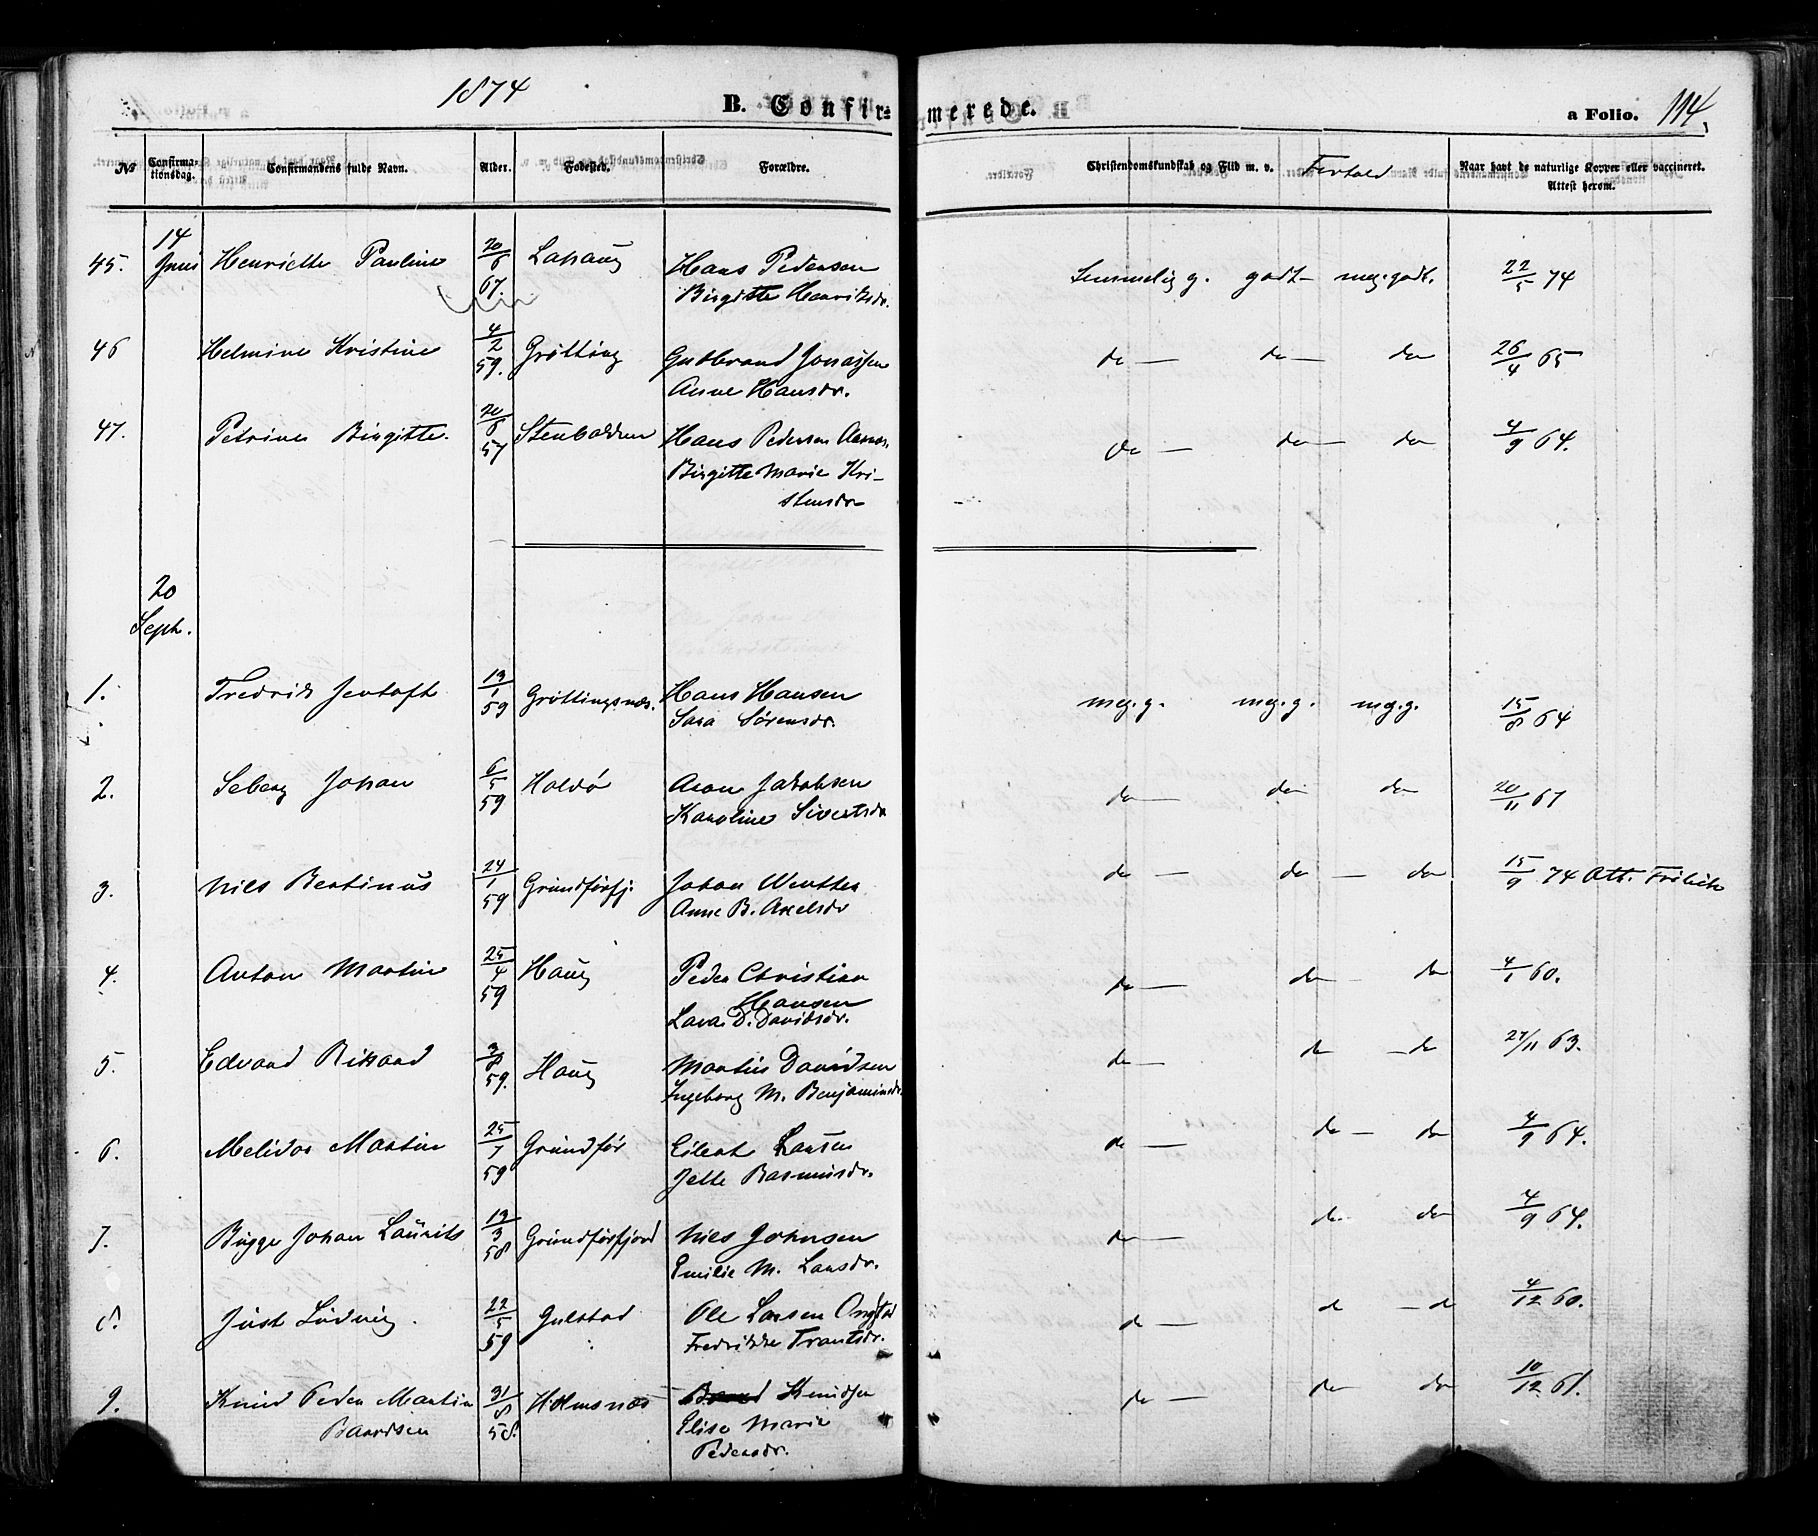 1874
B. Confirmerede.
a Folio. 114.
No
Confirmationsdag.
Confirmandens fulde Navn.
Alder.
Fødested.
Forældre.
Christendomskundskab og Flid m. v.
Forhold
Naar havt de naturlige Kopper eller vaccineret.
Attest herom.
14 Juni
45. Henriette Pauline 20/6 Hans Pedersen godt meg. godt. 22/5 74
Birgitte Henriksdr.
46 Helmine Kristine 4/2 59. Grötting Gudbrand Jonassen do do do 26/4 65
Anne Hansdr.
47. Petrine Birgitte. 20/6 57 Hans Pedersen do do do 4/9 64.
Birgitte Marie Kri-
stensdr
20
Septr.
1. Fredrik Jentoft 19/1 59 Gröttingsnæs. Hans Hansen meg. g. meg. g. meg. g. 15/8 64
Sara Sørensdr.
2. Seberg Johan 6/5 59 Haldö Aron Jakobsen do do do 20/11 67
Karoline Sivertsdr
3. Nils Bertinus 24/1 59 Grundförfj. Johan Wenthe do do do 15/9 74 Att.
Anne B. Axelsdr
4. Anton Martin 25/4 59 Haug Peder Christian do do do 4/1 60.
Hansen
Lava D. Davidsdr.
5. Edvard Rikard 3/8 59. Haug Martin Davidsen do do do 27/11 63.
Ingeborg M. Benjaminsdr.
6. Melidor Martin 25/7 59 Grundför Eilert Larsen do do do 4/9 64.
Jette Rasmusdr.
7. Bugge Johan Laurits 19/3 58 Grundförfjord Nils Johnsen do do do 4/9 64.
Emilie M. Larsdr.
8. Just Ludvig. 22/5 59 Gulstad Ole Larsen do do do 4/12 60.
Fredrikke Trantsdr.
9. Knud Peder Martin 31/8 58. Holmsnæs Knudsen do do do 10/12 61.
Baardsen Elise Marie
Pedersdr.